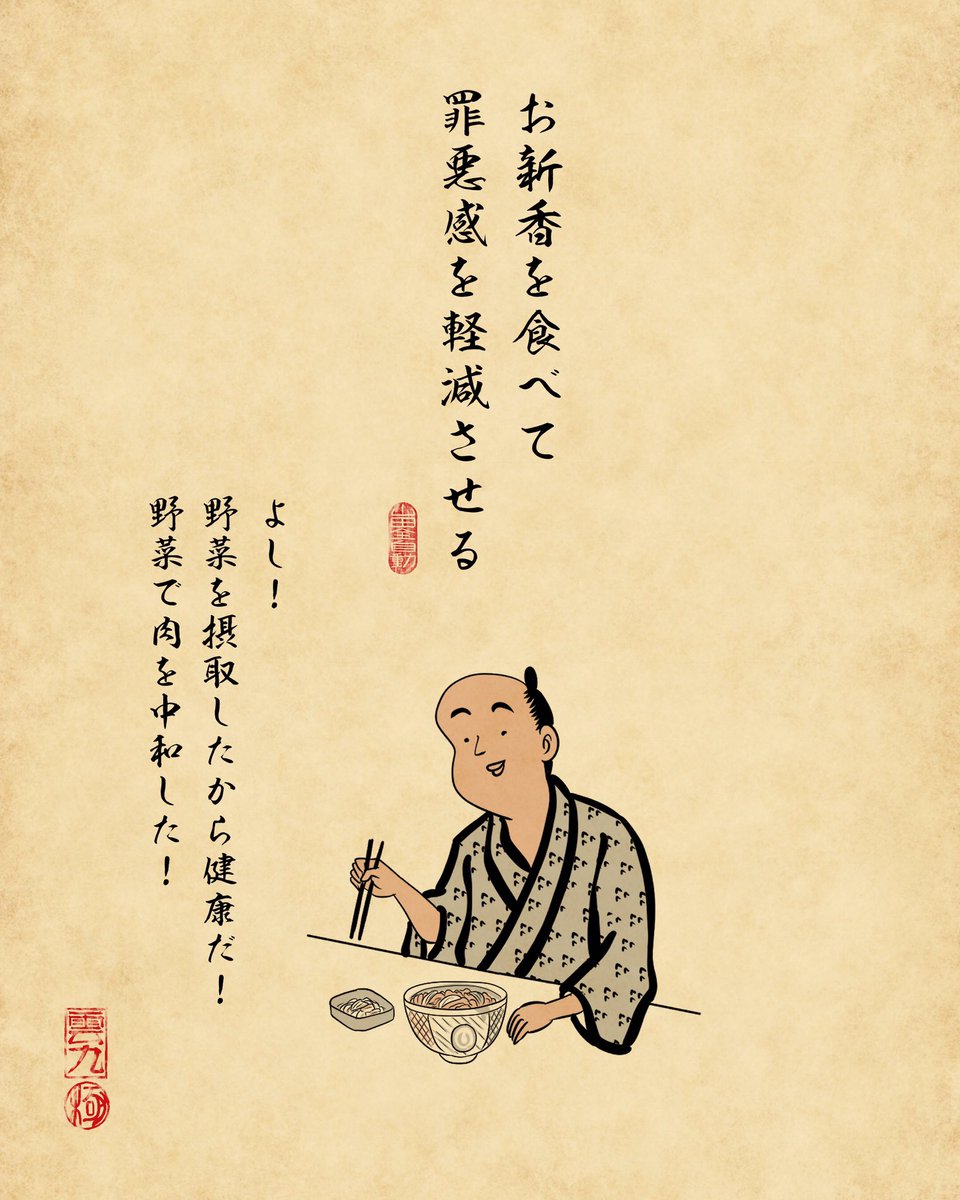 お新香を食べて
罪悪感を軽減させる
よし！
野菜を摂取したから健康だ！
野菜で肉を中和した！